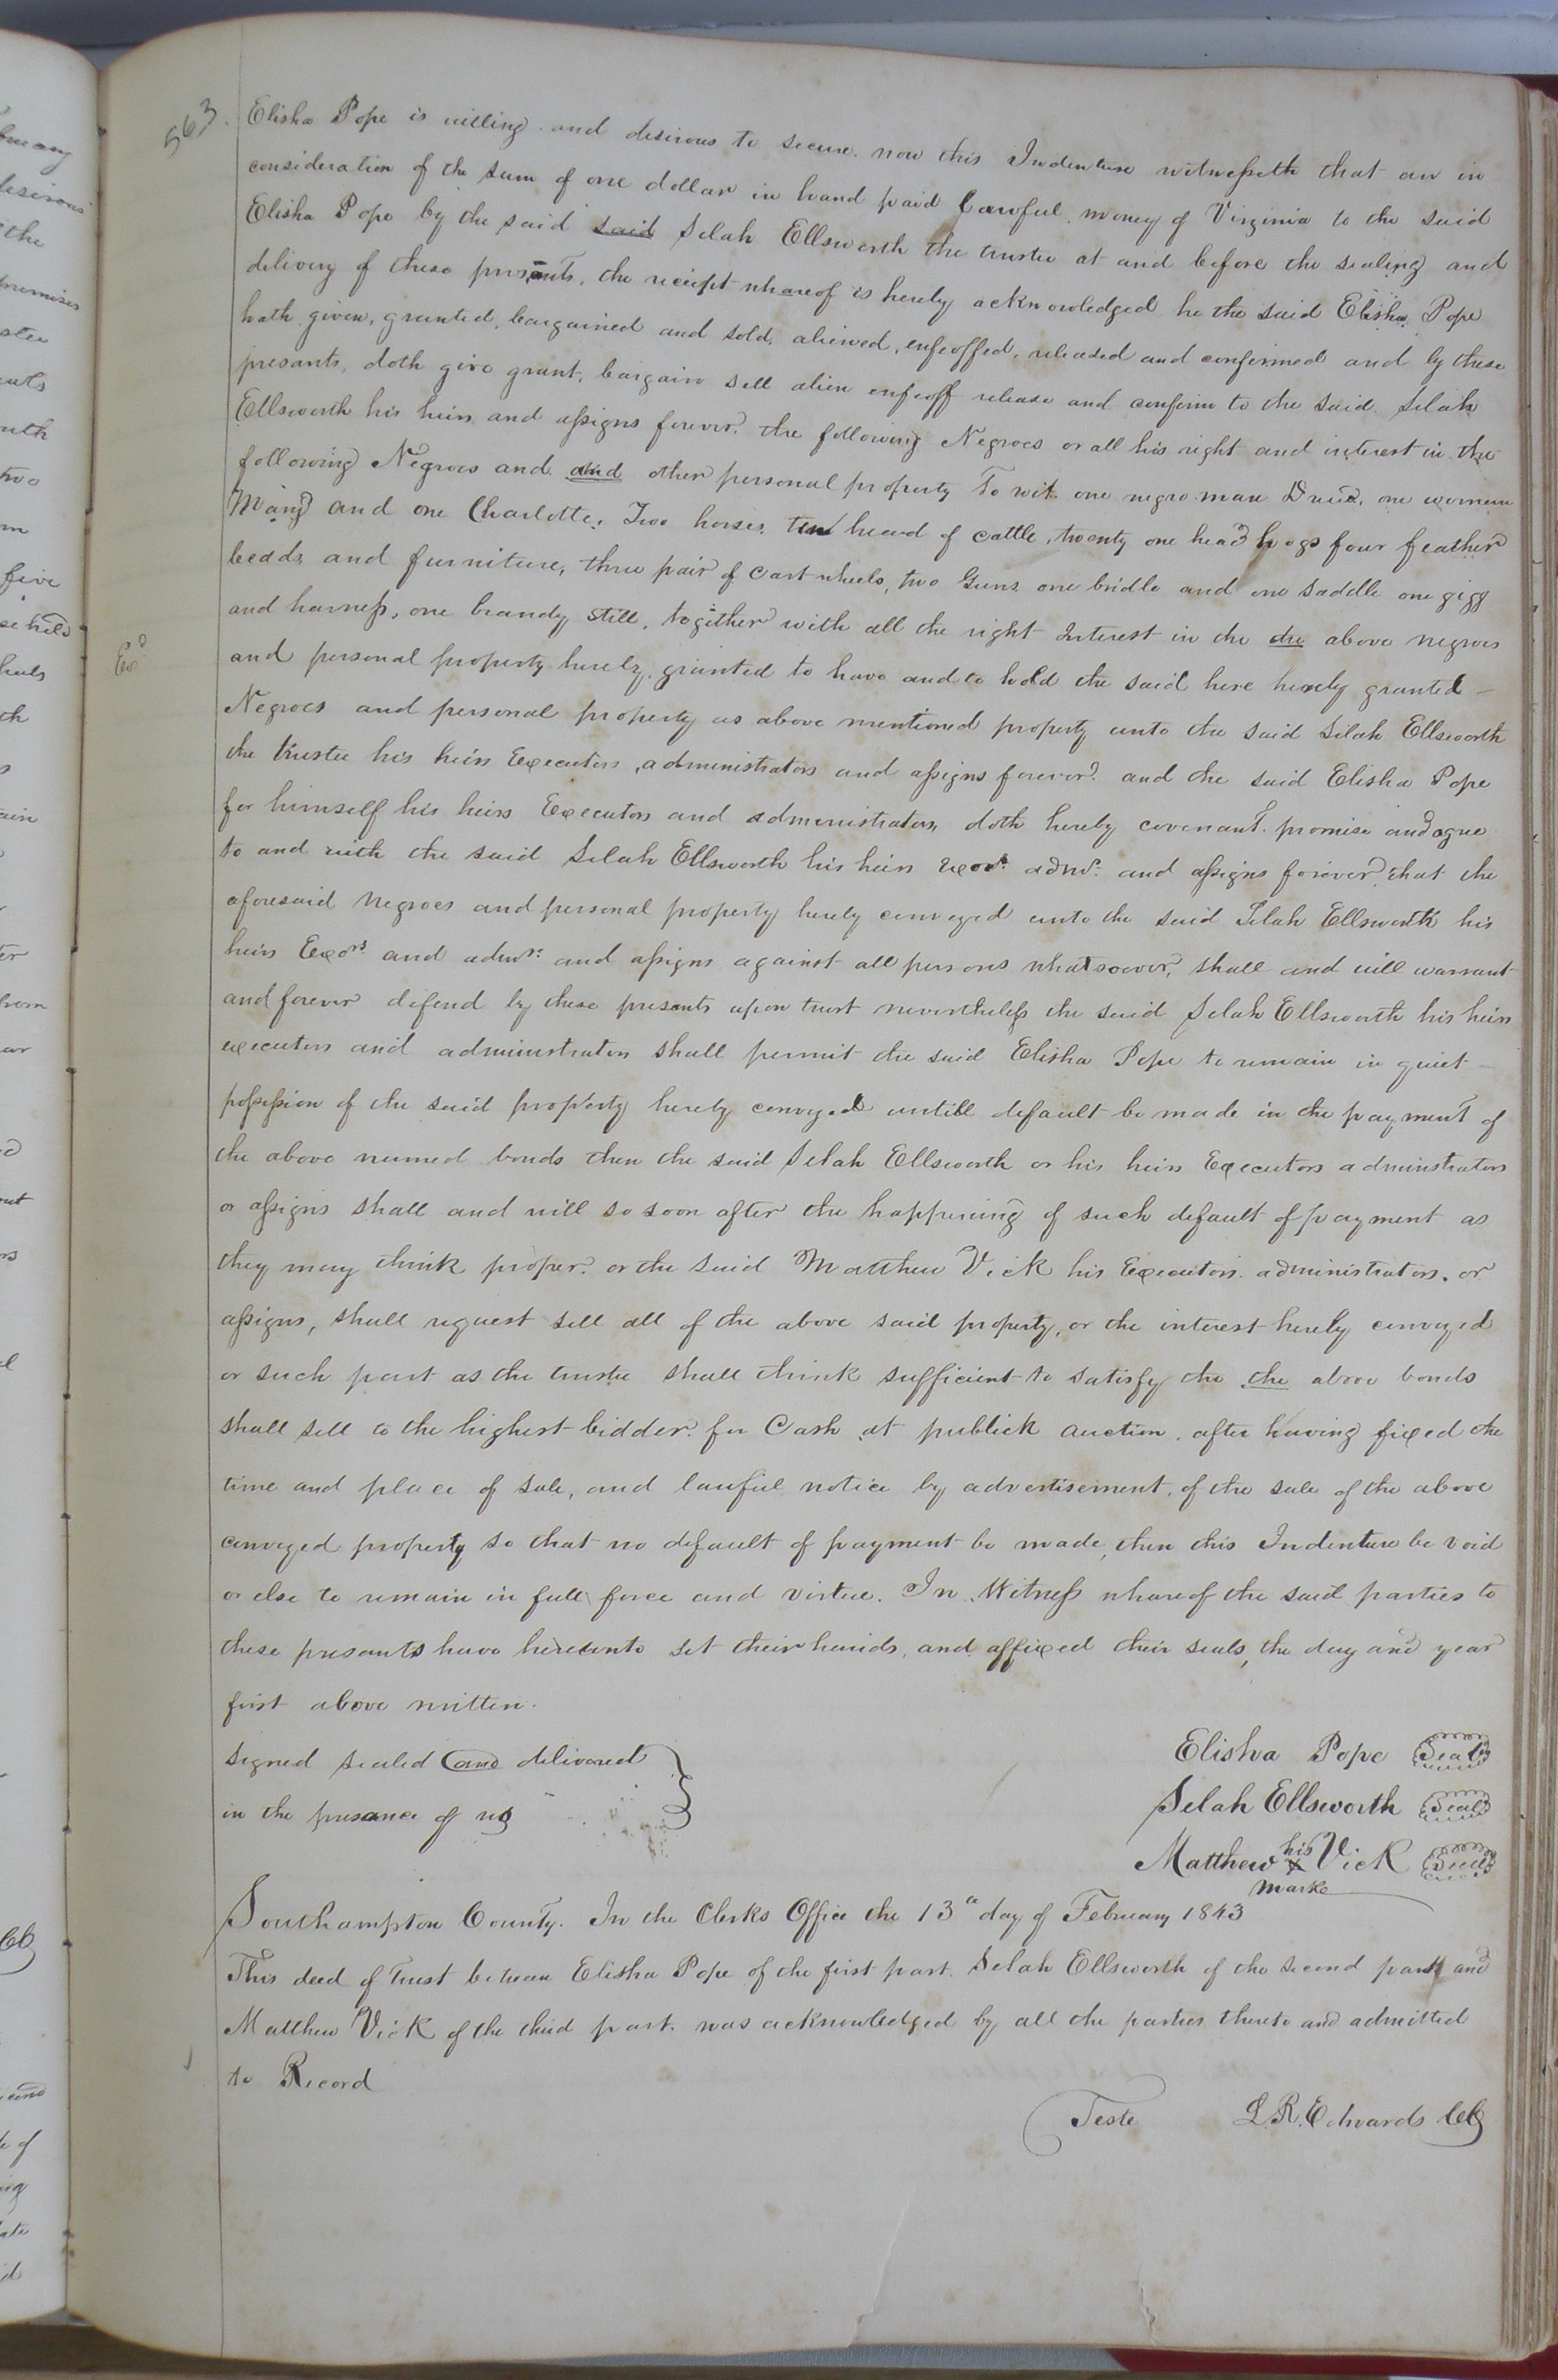 563.
Elisha Pope is willing and desirous to secure. now this Indenture witnesseth that an in
consideration of the sum of one dollar in hand paid Lawful money of Virginia to the said
Elisha Pope by the said said Selah Ellsworth the trustee at and before the sealing and
delivery of these presents, the receipt whareof is hereby acknowledged he the said Elisha Pope
hath given, granted, bargained and sold, aliened, enfeoffed, released and confirmed and by these
presants, doth give grant, bargain sell alien enfeoff release and confirm to the said Selah
Ellsworth his heirs and assigns forever. the following Negroes or all his right and interest in the
following Negroes and and other personal property To wit. one negro man one womern
Mary and one Charlotte, Two horses, ten head of cattle, twenty one head hogs four feather
beads and furniture, three pair of cart wheels, two Guns one bridle and one saddle one gigg
and harness, one brandy still, together with all the right Interest in the the above negroes
and personal property hereby granted to have and to hold the said here hereby granted -
Negroes and personal property as above mentioned property unto the said Selah Ellsworth
Exd
the trustee his heirs Executors, administrators and assigns forever. and the said Elisha Pope
for himself his heirs Executors and administrators, doth hereby covenant promise and agree
to and with the said Selah Ellsworth his heirs exors. admrs. and assigns forever, that the
aforesaid negroes and personal property hereby conveyed unto the said Selah Ellsworth his
heirs Exors. and admrs. and assigns against all persons whatsoever, shall and will warrant
and forever defend by these presents upon trust nevertheless the said Selah Ellsworth his heirs
executors and administrators shall permit the said Elisha Pope to remain in quiet -
possession of the said property hereby conveyed untill default be made in the payment of
the above named bonds then the said Selah Ellsworth or his heirs Executors adminstrators
or assigns shall and will so soon after the happening of such default of payment as
they may think proper. or the said Matthew Vick his Executors administrators. or
assigns, shall request sell all of the above said property, or the interest hereby conveyed
or such part as the trustee shall think sufficient to satisfy the the above bonds
shall sell to the highest bidder for Cash at publick auction. after having fixed the
time and place of sale, and lawful notice by advertisement, of the sale of the above
conveyed property so that no default of payment be made, then this Indenture be void
or else to remain in full force and virtue. In Witness whareof the said parties to
these presants have hereunto set their hands, and affixed their seals, the day and year
first above written.
Signed sealed and delivered
in the presance of us
Elisha Pope Seal
Selah Ellsworth Seal
Matthew his X mark Vick Seal
Southampton County. In the Clerks Office the 13th day of February 1843
This deed of Trust between Elisha Pope of the first part. Selah Ellsworth of the second part and
Matthew Vick of the third part. was acknowledged by all the parties thereto and admitted
to Record
Teste L. R. Edwards CC